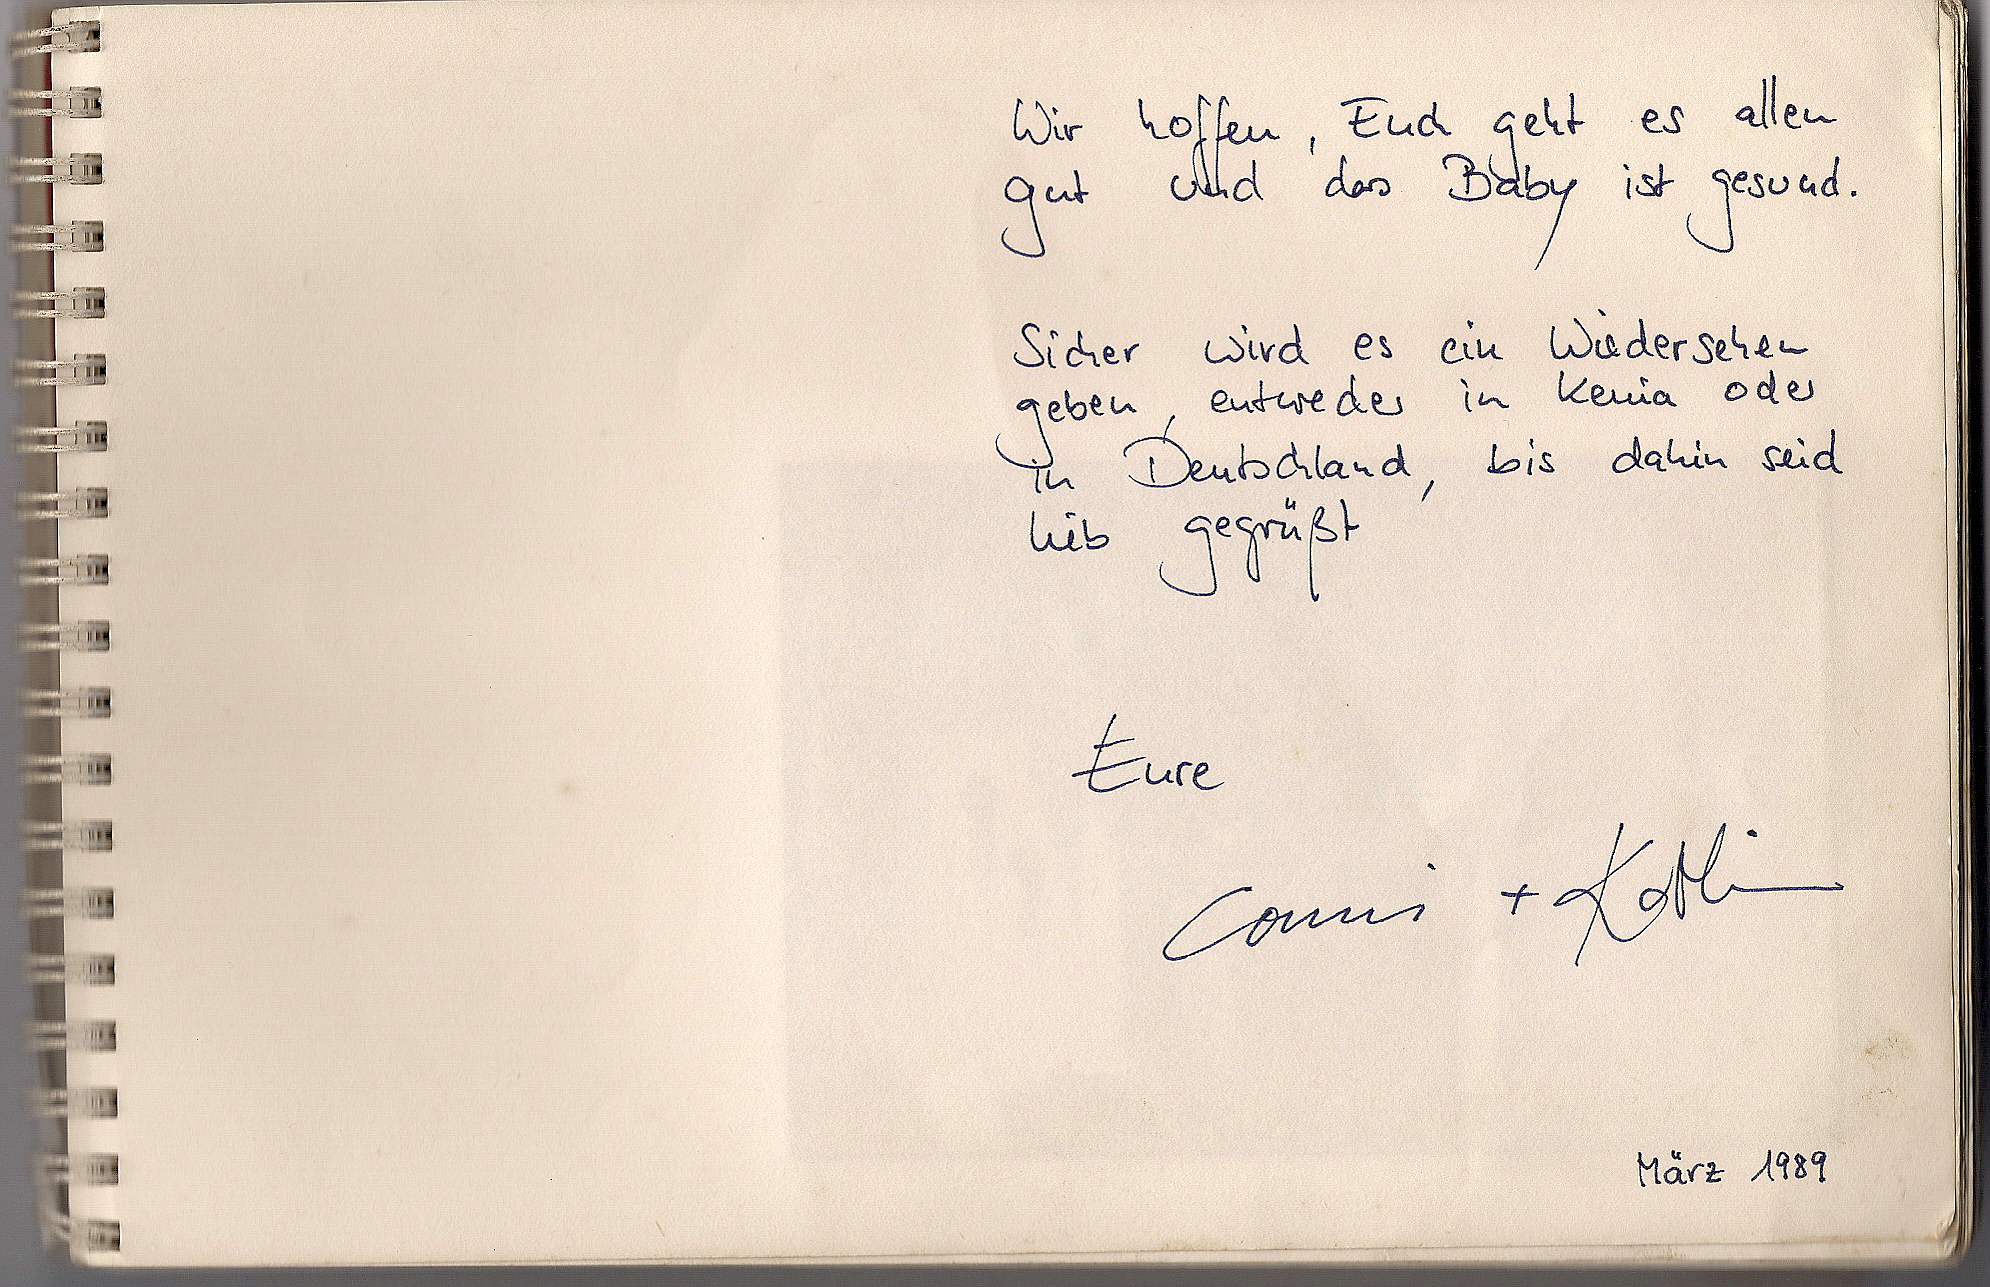 Wir hoffen, Euch geht es allen
gut und das Baby ist gesund.
Sicher wird es ein Wiedersehen
geben, entweder in Kenia oder
in Deutschland, bis dahin seid
lieb gegrüßt
Eure
Conni + Kathi
März 1989